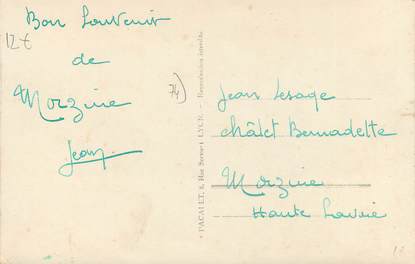 Bon Souvenir
12€
de
Morzine
Jean
74)
PACALET, 4, Rue Servient LYON. - Reproduction interdite
Jean Lesage
châlet Bernadette
Morzine
Haute Savoie